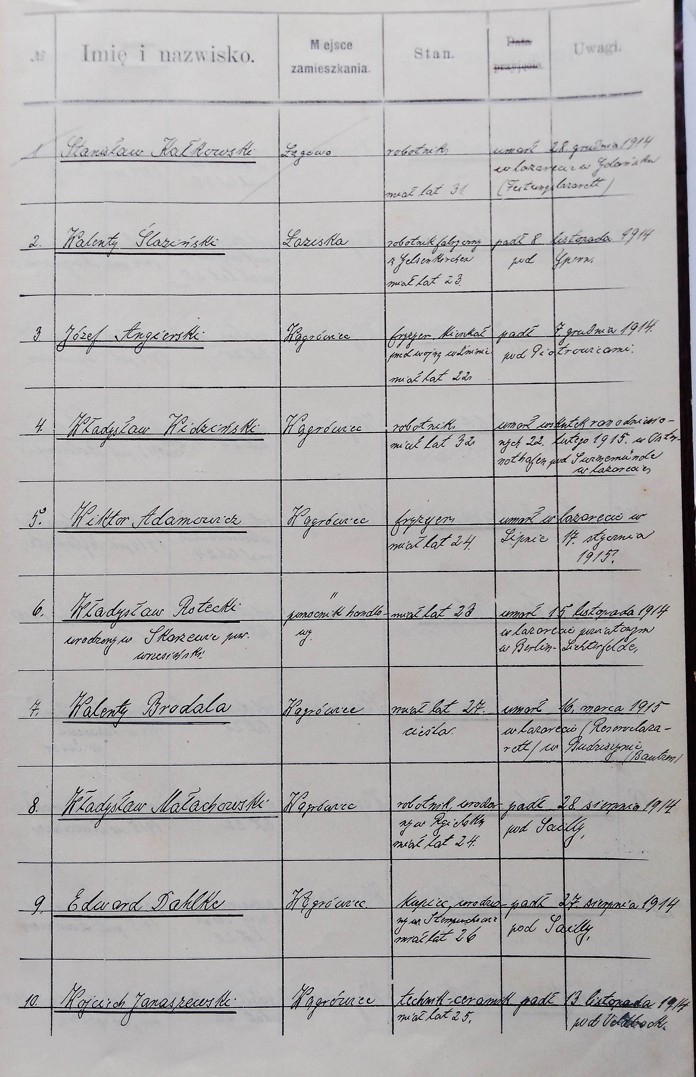 № Imię i nazwisko. Miejsce zamieszkania. Stan. Data przyjęcia. Uwagi.
1 Stanisław Kałkowski Łęgowo robotnik umarł 28 grudnia 1914
w lazarecie w Gdańsku
miał lat 31 (Festungslazarett)
2. Walenty Ślaziński Łaziska robotnik fabryczny padł 8 listopada 1914
z Gelsenkirchen pod Ypern.
miał lat 23.
3 Józef Angierski Wągrówiec fryzyer. Mieszkał padł 7 grudnia 1914.
przed wojną w pod Piotrowicami.
miał lat 22.
4 Władysław Widziński Wągrówiec robotnik umarł wskutek ran odniesio-
miał lat 32 nych 22. lutego 1915. w Ost-
nothafen pod Swinemünde
w lazarecie
5. Wiktor Adamowicz Wągrówiec fryzyer umarł w lazarecie w
miał lat 24. Lipnie 17. stycznia
1915.
6. Władysław Rotecki " pomocnik handlo- miał lat 23 umarł 15 listopada 1914
urodzony w pow. wy. w lazarecie powiatowym
wrzesiński. w Berlin-Lichterfelde.
7. Walenty Brodala Wągrówiec miał lat 27. umarł 16. marca 1915
cieśla w lazarecie (Reservelaza-
rett) w Budziszynie
(Bautzen)
8. Władysław Małachowski Wągrówiec robotnik, urodzo- padł 28 sierpnia 1914
ny w pod Sailly,
miał lat 24.
9. Edward Dahlke Wągrówiec. kupiec, urodzo- padł 27 sierpnia 1914
ny w pod Sailly,
miał lat 26
10. Wojciech Janaszewski Wągrówiec technik-ceramik padł 13 listopada 1914
miał lat 25. pod